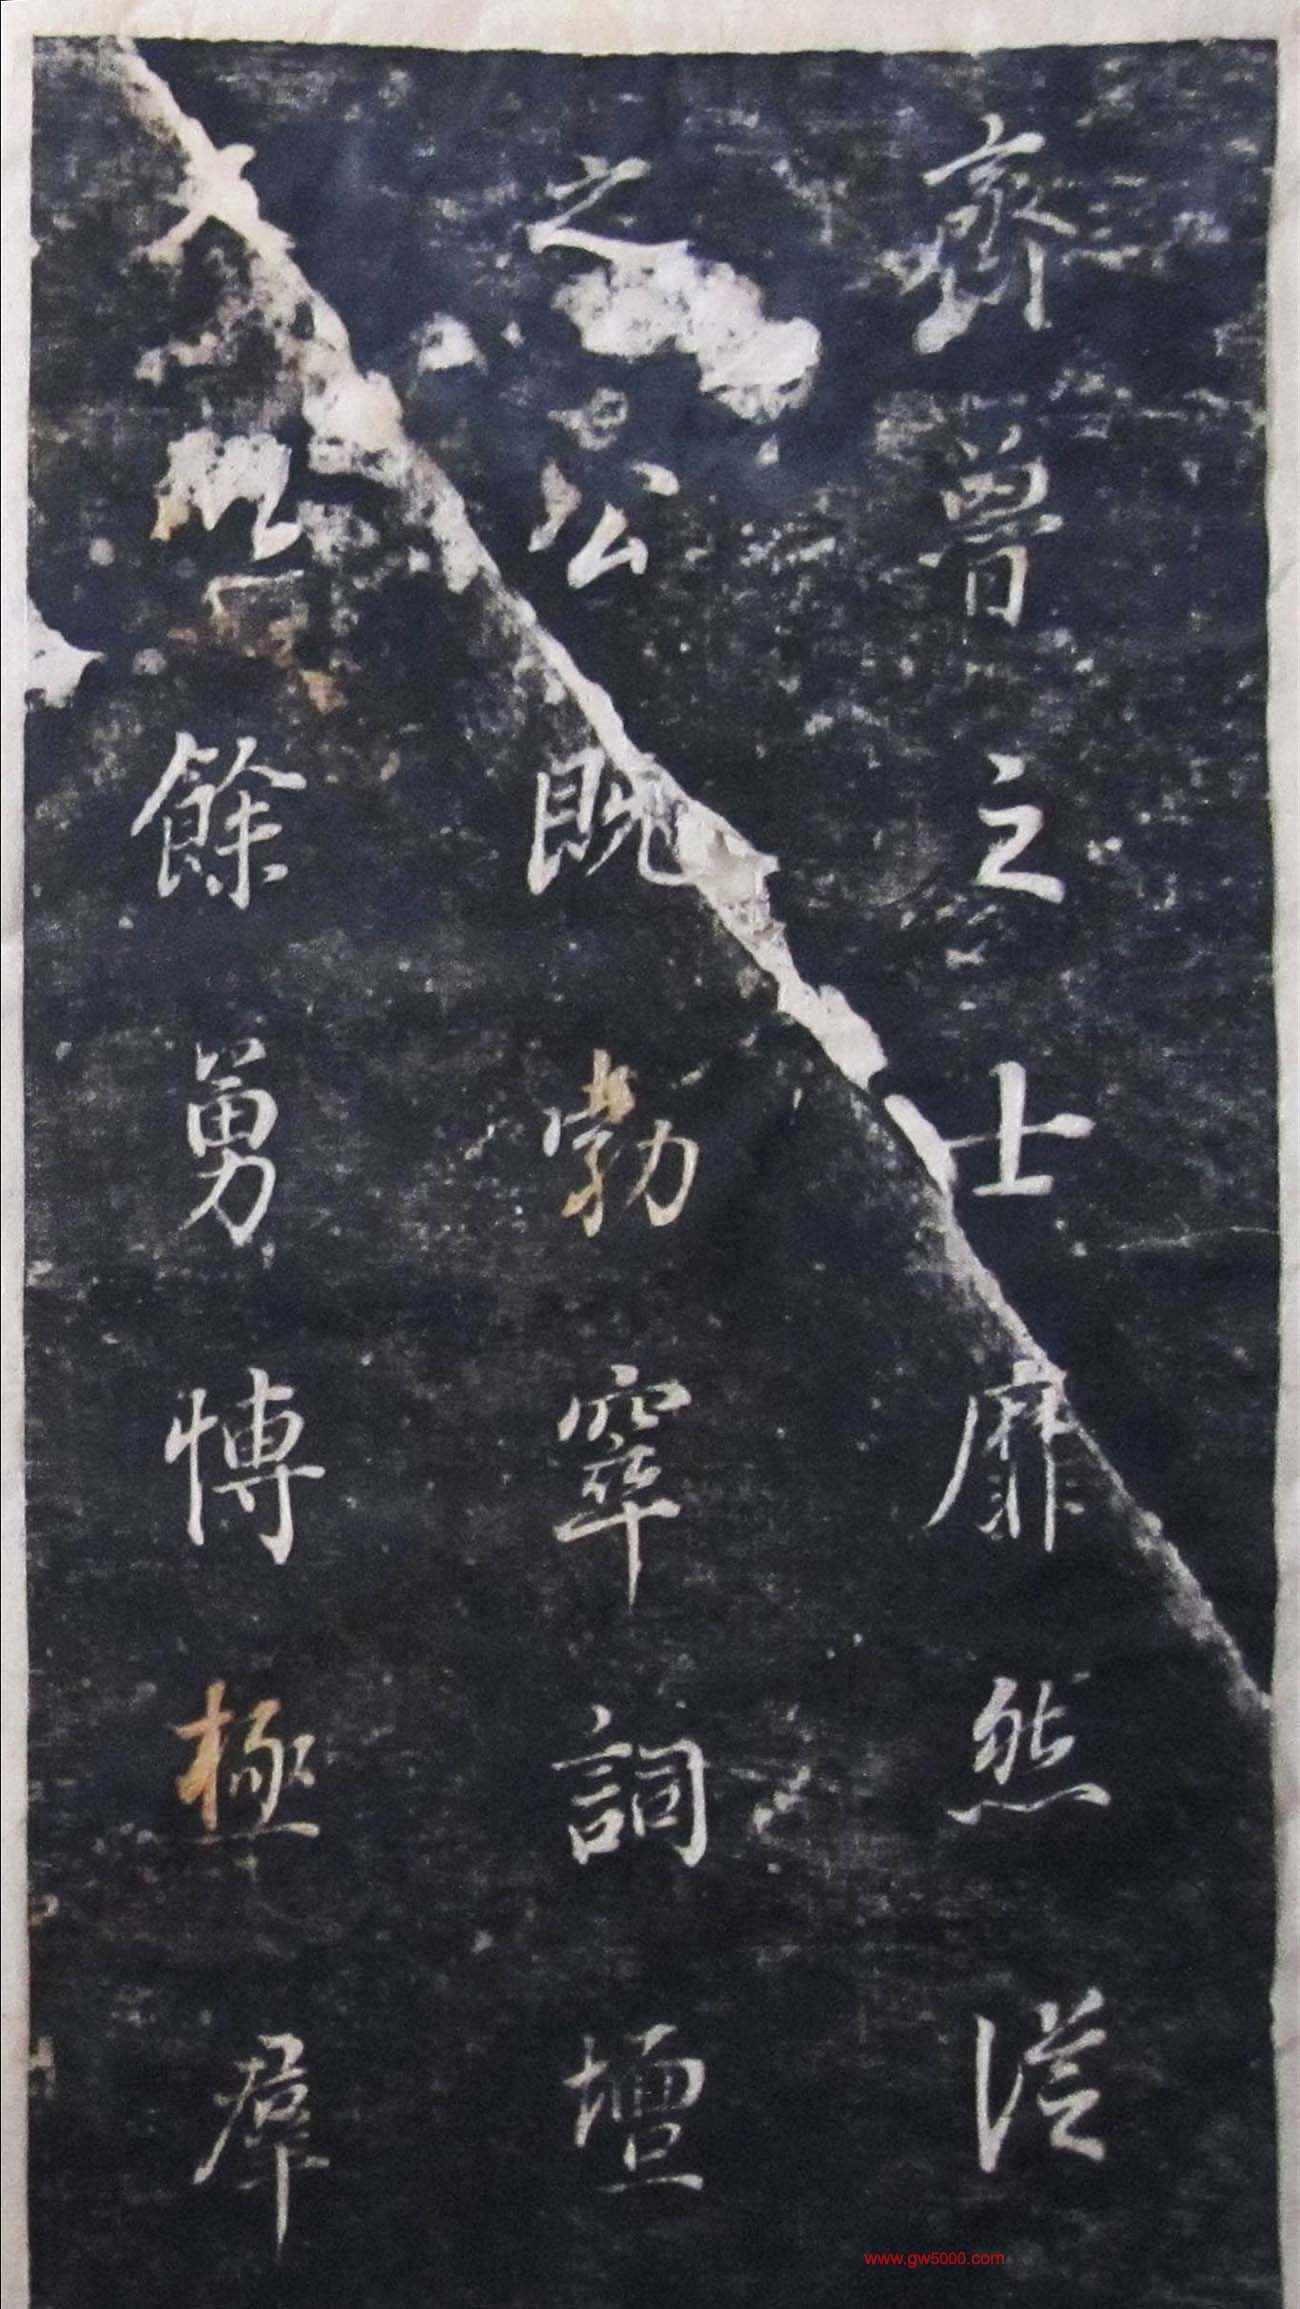 齊魯之士靡然從
之公既勃窣詞壇
又以餘勇博極群
www.gw5000.com